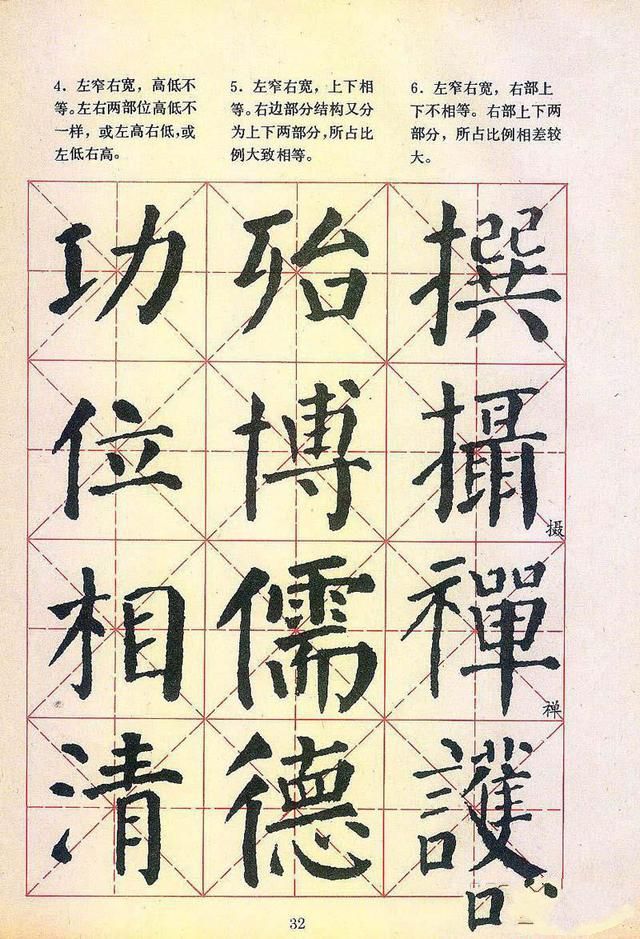 4．左窄右宽，高低不
等。左右两部位高低不
一样，或左高右低，或
左低右高。
5．左窄右宽，上下相
等。右边部分结构又分
为上下两部分，所占比
例大致相等。
6．左窄右宽，右部上
下不相等。右部上下两
部分，所占比例相差较
大。
功 殆 撰
位 博 攝
摄
相 儒 禪
禅
清 德 護
32